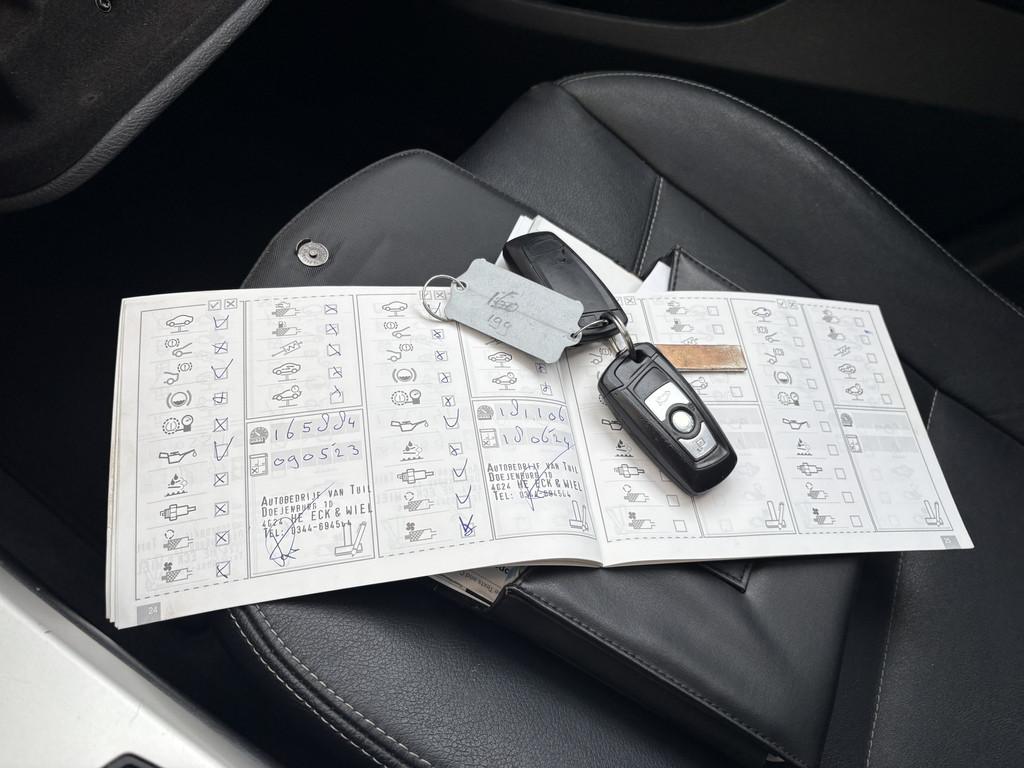 165884
090523
AUTOBEDRIJF VAN TUIL
DOEJENBURG 10
4024 HE ECK & WIEL
TEL: 0344-694544
181106
180624
AUTOBEDRIJF VAN TUIL
DOEJENBURG 10
4024 HE ECK & WIEL
TEL: 0344-694544
199
24